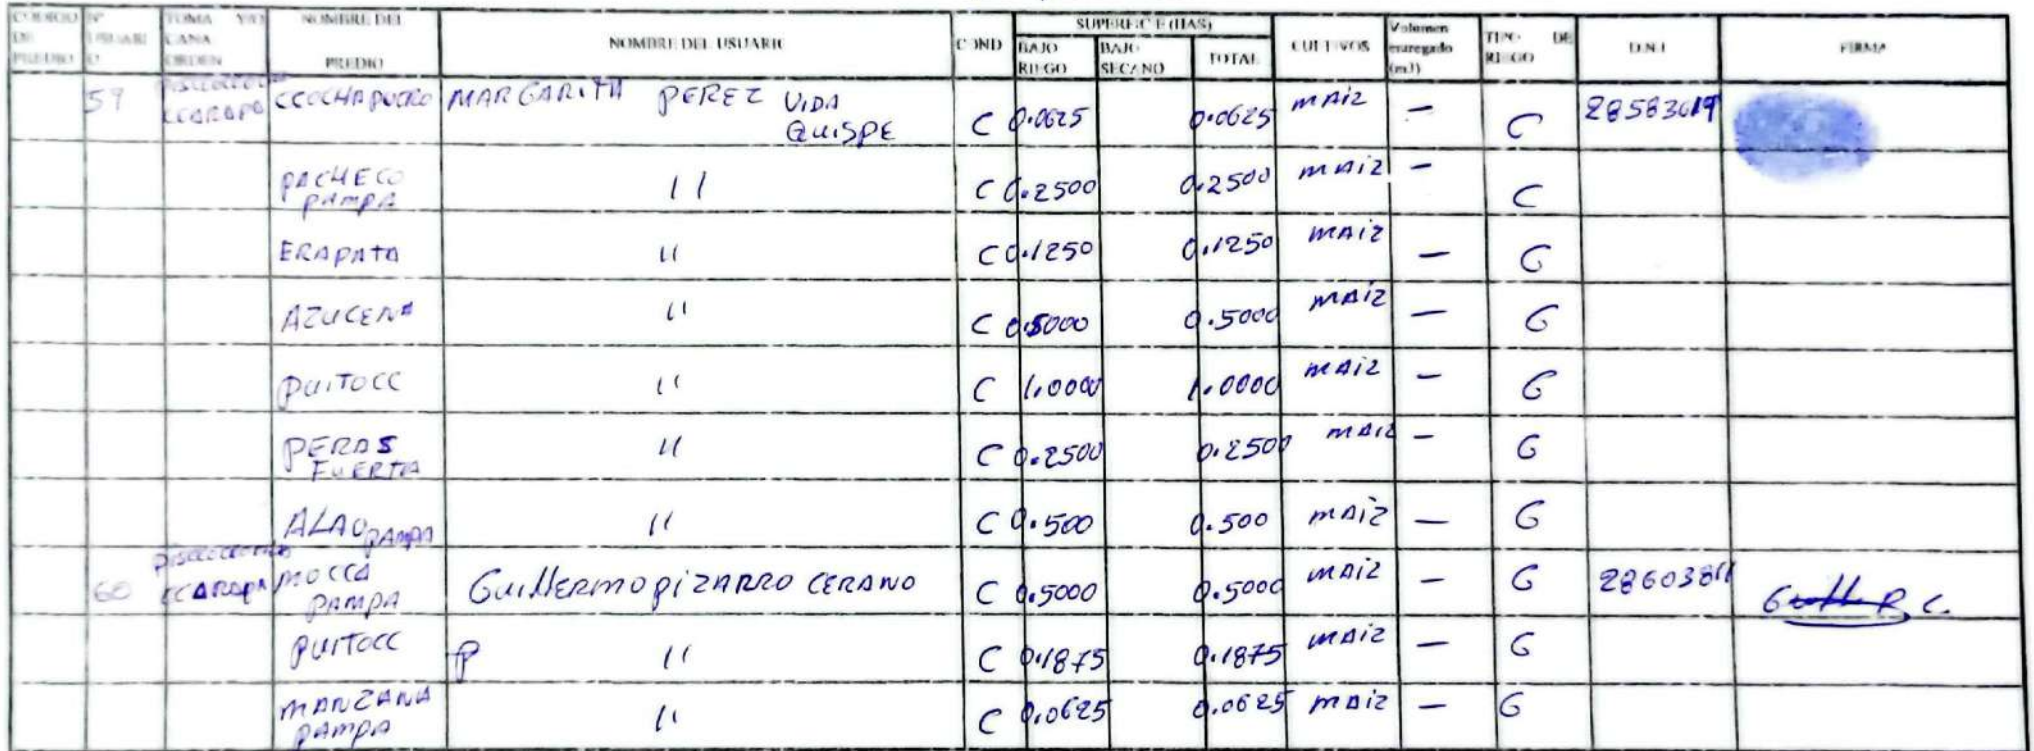 CODIGO DE PREDIO N° USUARIO TOMA Y/O CANA ORDEN NOMBRE DEL PREDIO NOMBRE DEL USUARIO COND SUPERFICIE (HAS) BAJO RIEGO BAJO SECANO TOTAL CULTIVOS Volumen entregado (m3) TIPO DE RIEGO D.N.I FIRMA
59 CCARAPA CCOCHAPUCRO MARGARITA PEREZ VIDA QUISPE C 0.0625 0.0625 MAIZ — C 28583619
PACHECO PAMPA 11 C 0.2500 0.2500 MAIZ — C
ERAPATA 11 C 0.1250 0.1250 MAIZ — G
AZUCENA 11 C 0.5000 0.5000 MAIZ — G
PUITOCC 11 C 1.0000 1.0000 MAIZ — G
PERAS FUERTA 11 C 0.2500 0.2500 MAIZ — G
ALAOPAMPA 11 C 0.500 0.500 MAIZ — G
60 CCARAPA MOCCA PAMPA Guillermo PIZARRO CERANO C 0.5000 0.5000 MAIZ — G 28603811
PUITOCC P 11 C 0.1875 0.1875 MAIZ — G
MANZANA PAMPA 11 C 0.0625 0.0625 MAIZ — G